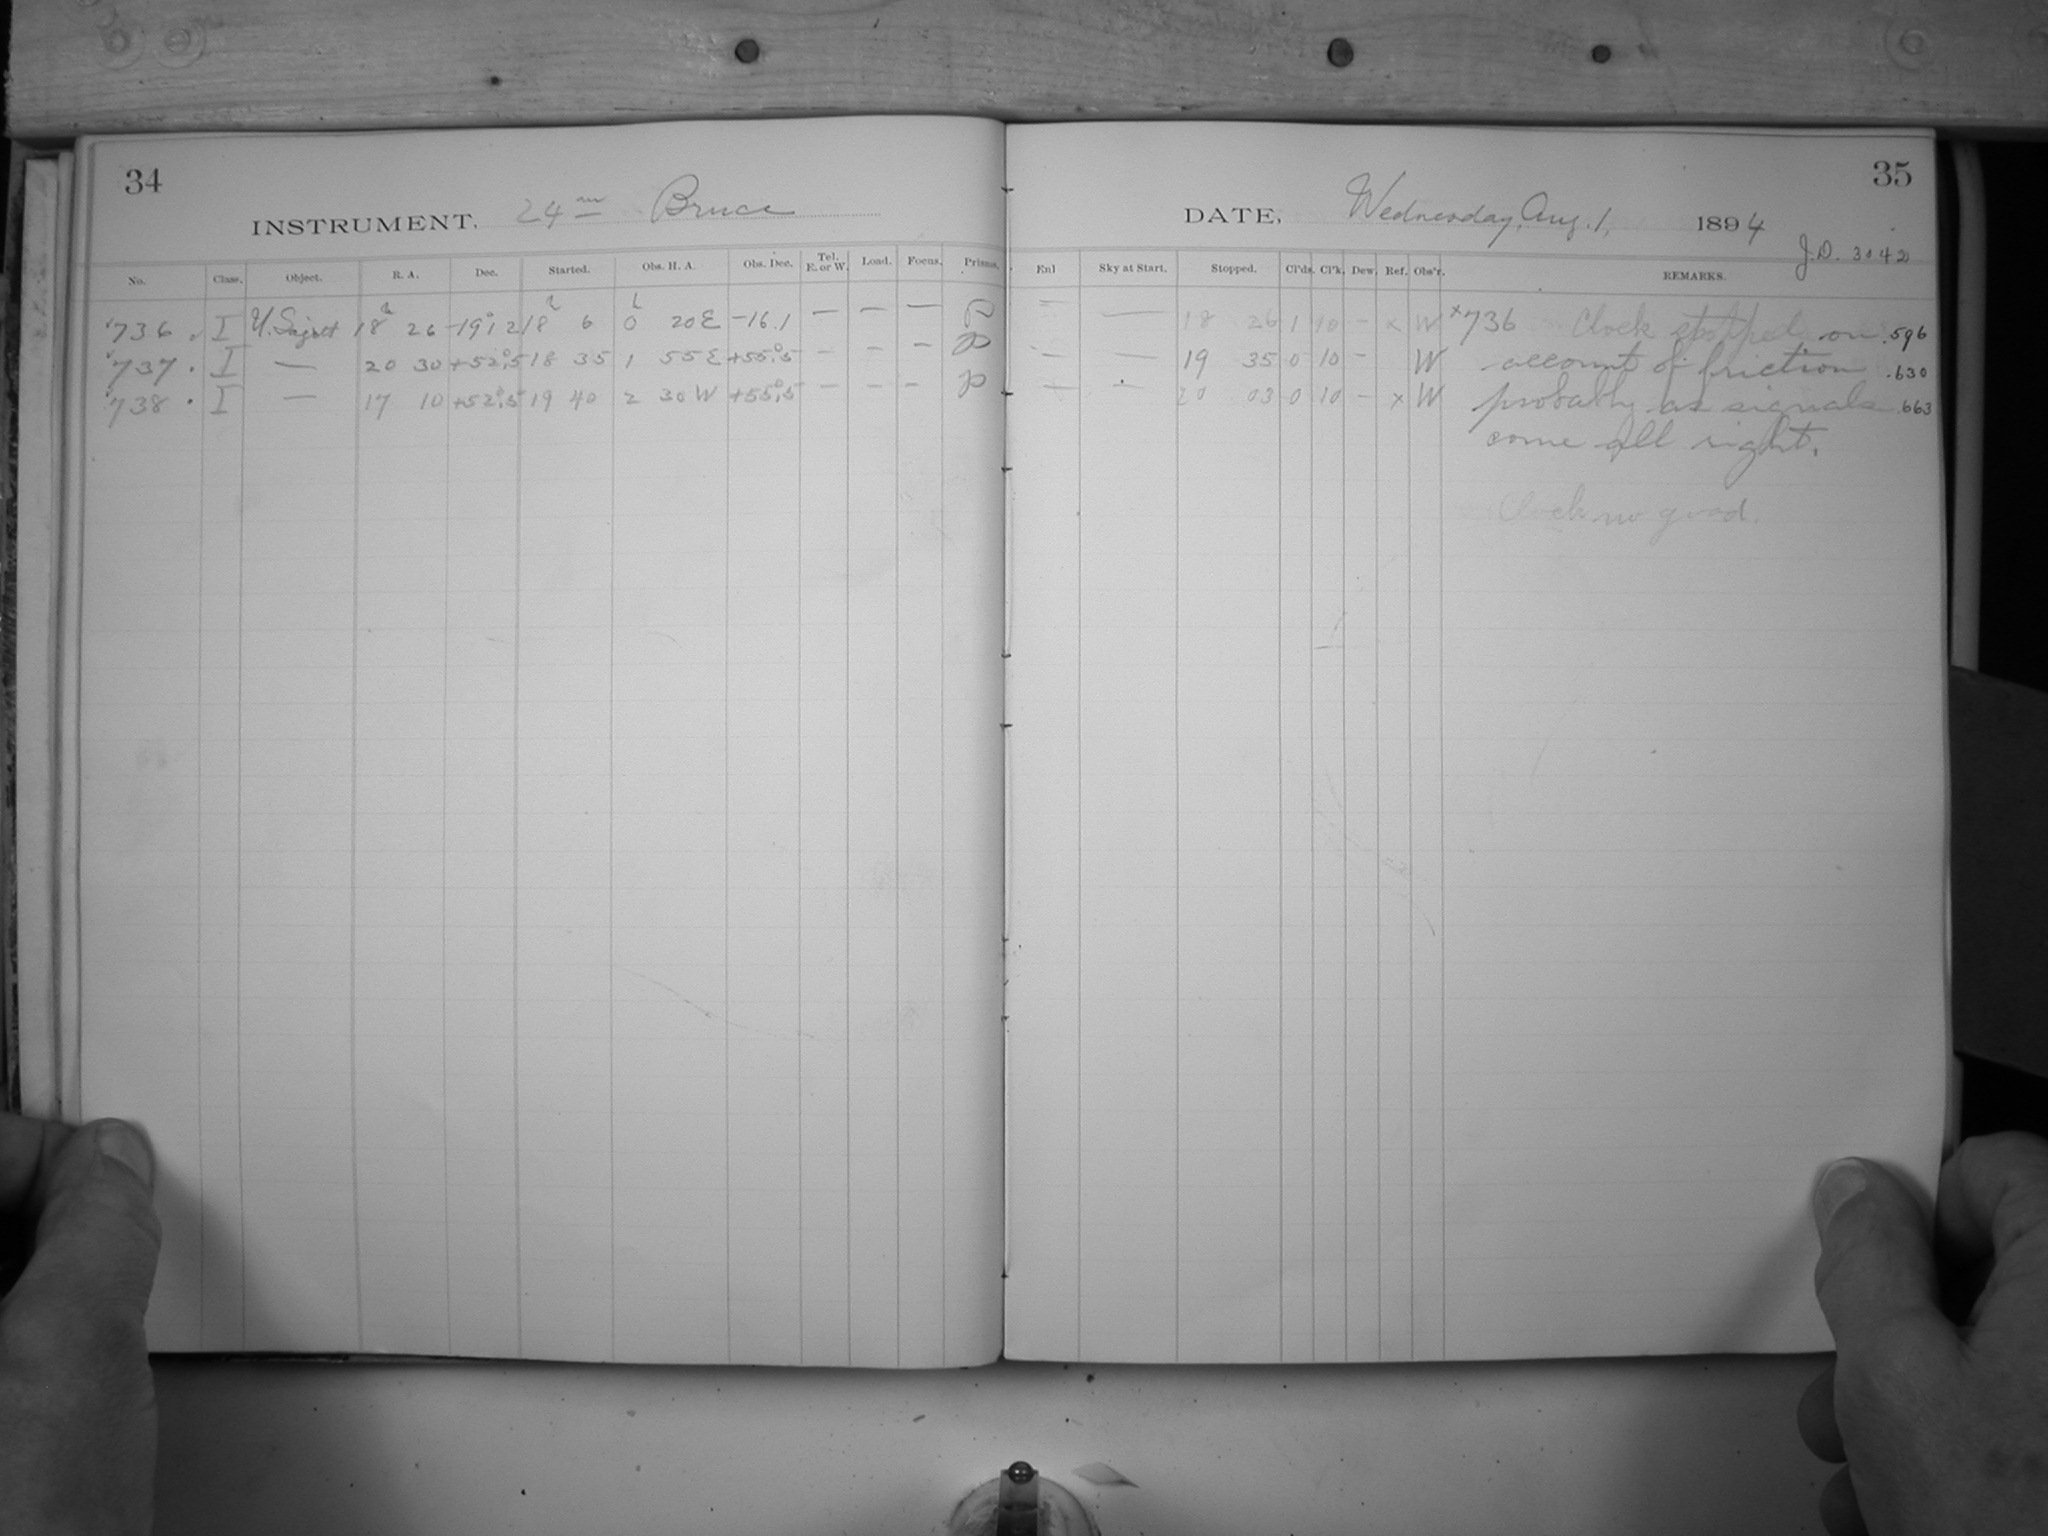 34
INSTRUMENT, 24 in Bruce
No. Class. Object. R. A. Dec. Started. Obs. H. A. Obs. Dec. Tel. E. or W. Load. Focus. Prisms.
736 I U. Sagitt 18h 26 -19° 12 18h 6 0h 20 E -16.1 — — —
737 I — 20 30 +52°.5 18 35 1 55 E +55°.5 — — —
738 I — 17 10 +52°.5 19 40 2 30 W +55°.5 — — —
35
DATE, Wednesday, Aug. 1, 1894
J.D. 3042
Enl Sky at Start. Stopped. Cl'ds. Cl'k. Dew. Ref. Obs'r. REMARKS.
— — 18 26 1 10 — x W x736 Clock stopped on .596
— — 19 35 0 10 — W account of friction .630
— — 20 03 0 10 — x W probably as signals .663
come all right.
Clock no good.